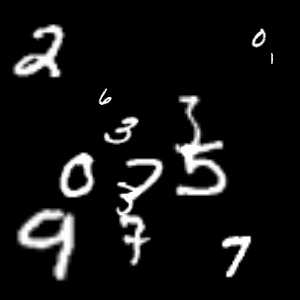 2 0
1
6
3 7
0 7 5
3
9 7 7